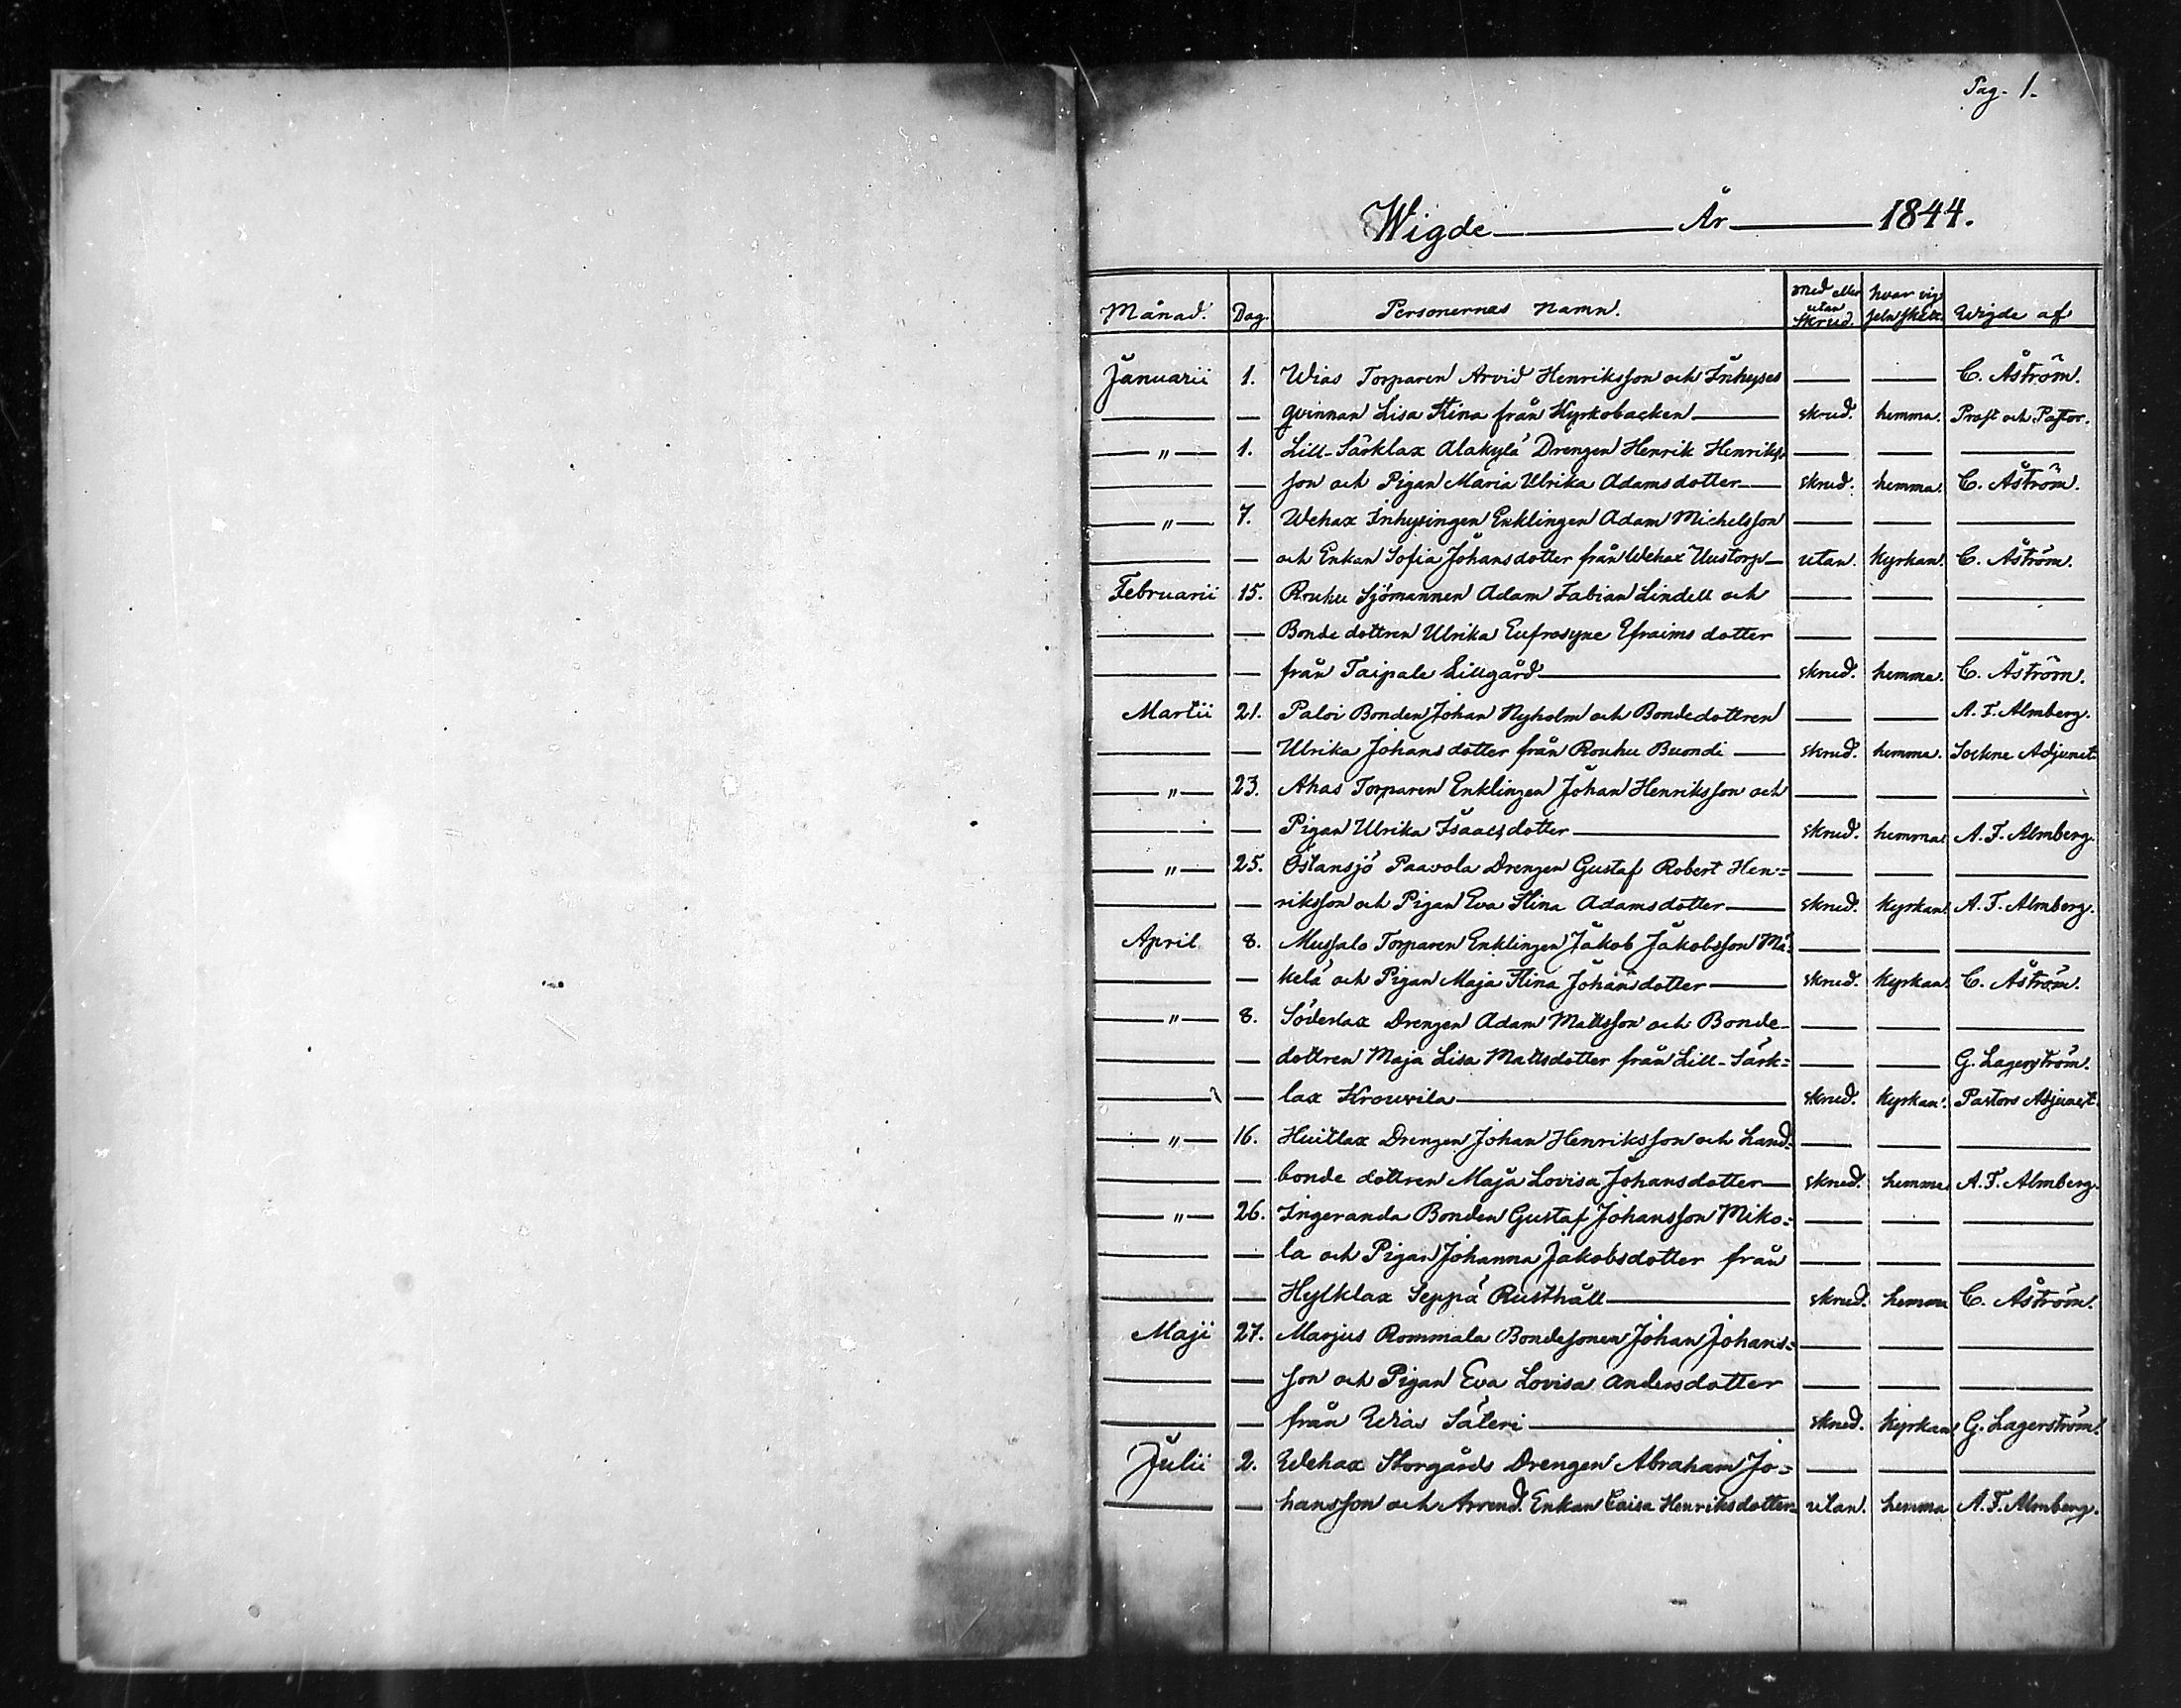 Pag. 1.
Wigde År 1844.
Månad. Dag. Personernas Namn. Med eller utan skrud. hvar vigseln skett. Wigde af
Januarii 1. Wias Torparen Arvid Henriksson och Inhyses — — C. Åström.
— — qvinnan Lisa Stina från Kyrkobacken — skrud. hemma. Prost och Pastor.
— " — 1. Lill-Särklax Alakylä Drengen Henrik Henriks- — — —
— — son och Pigan Maria Ulrika Adamsdotter — skrud. hemma. C. Åström.
— " — 7. Wehax Inhysingen Enklingen Adam Michelsson — — —
— — och Enkan Sofia Johansdotter från Wehax Uustorp — utan. Kyrkan. C. Åström.
Februarii 15. Rouhu Sjömannen Adam Fabian Lindell och — — —
— — Bonde dottren Ulrika Eufrosyne Efraims dotter — — —
— — från Taipale Lillgård — skrud. hemma. C. Åström.
Martii 21. Paloi Bonden Johan Nyholm och Bondedottren — — A. F. Almberg.
— — Ulrika Johans dotter från Rouhu Buondi — skrud. hemma. Sockne Adjunct.
— " — 23. Ahas Torparen Enklingen Johan Henriksson och — — —
— — Pigan Ulrika Isaacsdotter — skrud. hemma. A. F. Almberg.
— " — 25. Östansjö Paavola Drengen Gustaf Robert Hen= — — —
— — riksson och Pigan Eva Stina Adamsdotter — skrud. Kyrkan. A. F. Almberg.
April 8. Mussalo Torparen Enklingen Jakob Jakobsson Mä= — — —
— — kelä och Pigan Maja Stina Johansdotter — skrud. Kyrkan. C. Åström.
— " — 8. Söderlax Drengen Adam Mattsson och Bonde- — — —
— — dottren Maja Lisa Mattsdotter från Lill-Särk= — — G. Lagerström.
— — lax Krouvila — skrud. Kyrkan. Pastors Adjunct.
— " — 16. Huitlax Drengen Johan Henriksson och Land= — — —
— — bonde dottren Maja Lovisa Johansdotter — skrud. hemma. A. F. Almberg.
— " — 26. Ingeranda Bonden Gustaf Johansson Miko= — — —
— — la och Pigan Johanna Jakobsdotter från — — —
— — Hylklax Seppä Rusthåll — skrud. hemma C. Åström.
Maji 27. Marjus Rommala Bondesonen Johan Johans= — — —
— — son och Pigan Eva Lovisa Andersdotter — — —
— — från Wias Säteri — skrud. Kyrkan G. Lagerström.
Julii 2. Wehax Storgårds Drengen Abraham Jo= — — —
— — hansson och Arrend. Enkan Caisa Henriksdotter — utan. hemma A. F. Almberg.